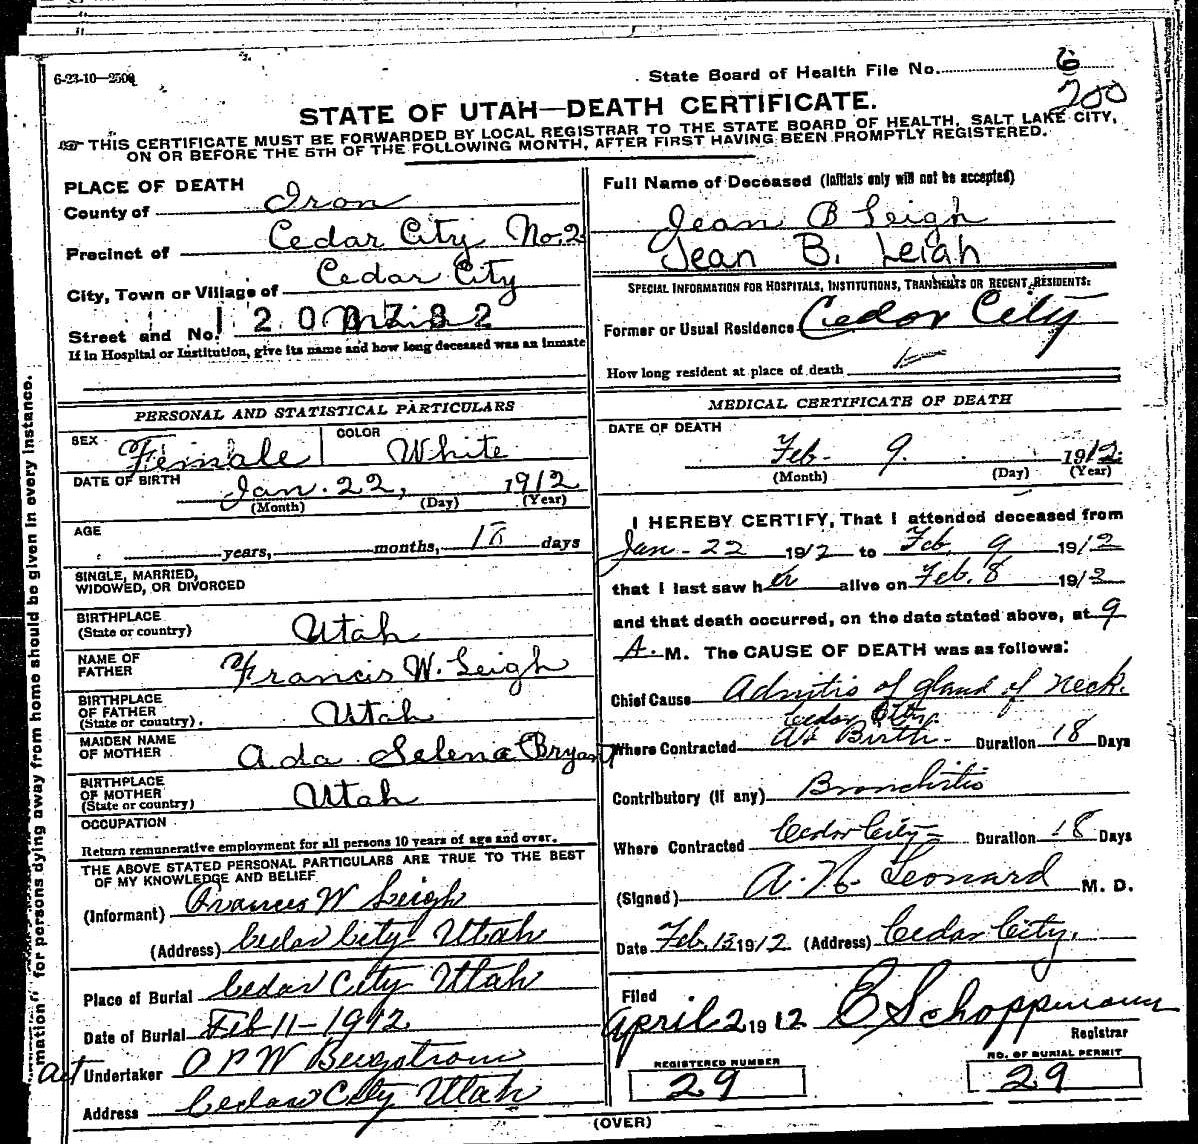 6-23-10—2500
State Board of Health File No. 6
200
STATE OF UTAH—DEATH CERTIFICATE.
THIS CERTIFICATE MUST BE FORWARDED BY LOCAL REGISTRAR TO THE STATE BOARD OF HEALTH, SALT LAKE CITY,
ON OR BEFORE THE 5TH OF THE FOLLOWING MONTH, AFTER FIRST HAVING BEEN PROMPTLY REGISTERED.
PLACE OF DEATH
County of Iron
Precinct of Cedar City No. 2
City, Town or Village of Cedar City
Street and No. 1200782
If in Hospital or Institution, give its name and how long deceased was an inmate
Full Name of Deceased (Initials only will not be accepted)
Jean B Leigh
Jean B. Leigh
SPECIAL INFORMATION FOR HOSPITALS, INSTITUTIONS, TRANSIENTS OR RECENT RESIDENTS:
Former or Usual Residence Cedar City
How long resident at place of death
PERSONAL AND STATISTICAL PARTICULARS
SEX Female COLOR White
DATE OF BIRTH Jan. 22, 1912
(Month) (Day) (Year)
AGE
years, months, 18 days
SINGLE, MARRIED,
WIDOWED, OR DIVORCED
BIRTHPLACE
(State or country) Utah
NAME OF
FATHER Francis W. Leigh
BIRTHPLACE
OF FATHER
(State or country). Utah
MAIDEN NAME
OF MOTHER Ada Selena Bryant
BIRTHPLACE
OF MOTHER
(State or country) Utah
OCCUPATION
Return remunerative employment for all persons 10 years of age and over.
THE ABOVE STATED PERSONAL PARTICULARS ARE TRUE TO THE BEST
OF MY KNOWLEDGE AND BELIEF
(Informant) Frances W Leigh
(Address) Cedar City Utah
Place of Burial Cedar City Utah
Date of Burial Feb 11-1912
Act Undertaker O P W Bergstrom
Address Cedar City Utah
MEDICAL CERTIFICATE OF DEATH
DATE OF DEATH
Feb. 9. 1912.
(Month) (Day) (Year)
I HEREBY CERTIFY, That I attended deceased from
Jan - 22 1912 to Feb. 9 1912
that I last saw her alive on Feb. 8 1912
and that death occurred, on the date stated above, at 9
A. M. The CAUSE OF DEATH was as follows:
Chief Cause Adnitis of gland of neck.
Cedar City
Where Contracted At Birth - Duration 18 Days
Contributory (if any) Bronchitis
Where Contracted Cedar City - Duration 18 Days
(Signed) A. N. Leonard M. D.
Date Feb. 13 1912 (Address) Cedar City.
Filed
April 2 1912 E Schoppmann
Registrar
REGISTERED NUMBER
29
NO. OF BURIAL PERMIT
29
(OVER)
for persons dying away from home should be given in every instance.